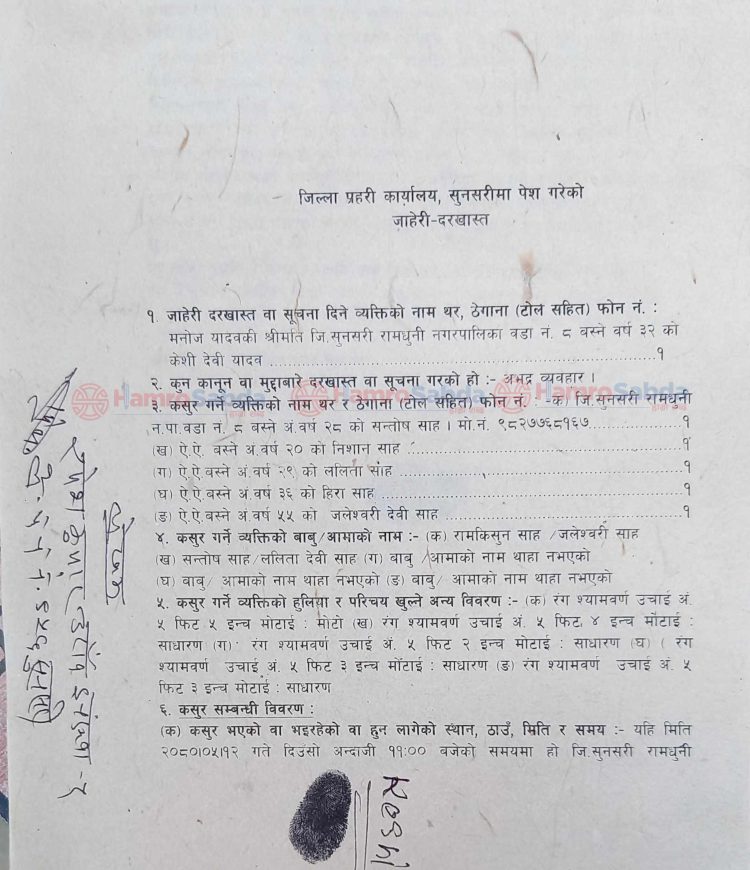 जिल्ला प्रहरी कार्यालय, सुनसरीमा पेश गरेको
जाहेरी-दरखास्त
१. जाहेरी दरखास्त वा सूचना दिने व्यक्तिको नाम थर, ठेगाना (टोल सहित) फोन नं. :
मनोज यादवकी श्रीमति जि.सुनसरी रामधुनी नगरपालिका वडा नं. ८ बस्ने वर्ष ३२ को
केशी देवी यादव ........................................................................१
२. कुन कानून वा मुद्दाबारे दरखास्त वा सूचना गरको हो :- अभद्र व्यवहार ।
HamroSabda HamroSabda HamroSabda
३. कसुर गर्ने व्यक्तिको नाम थर र ठेगाना (टोल सहित) फोन नं. : -क) जि.सुनसरी रामधुनी
न.पा.वडा नं. ८ बस्ने अं.वर्ष २८ को सन्तोष साह । मो.नं. ९८२७७६८१६७..................१
(ख) ऐ.ऐ. बस्ने अं.वर्ष २० को निशान साह ..................................................१
(ग) ऐ.ऐ.बस्ने अं.वर्ष २९ को ललिता साह ..................................................१
(घ) ऐ.ऐ.बस्ने अं.वर्ष ३६ को हिरा साह......................................................१
(ङ) ऐ.ऐ.बस्ने अं.वर्ष ५५ को जलेश्वरी देवी साह ............................................१
४. कसुर गर्ने व्यक्तिको बाबु/आमाको नाम :- (क) रामकिसुन साह /जलेश्वरी साह
(ख) सन्तोष साह/ललिता देवी साह (ग) बाबु /आमाको नाम थाहा नभएको
(घ) बाबु/ आमाको नाम थाहा नभएको (ङ) बाबु/ आमाको नाम थाहा नभएको
५. कसुर गर्ने व्यक्तिको हुलिया र परिचय खुल्ने अन्य विवरण :- (क) रंग श्यामवर्ण उचाई अं.
५ फिट ५ इन्च मोटाई : मोटो (ख) रंग श्यामवर्ण उचाई अं. ५ फिट ४ इन्च मोटाई :
साधारण (ग): रंग श्यामवर्ण उचाई अं. ५ फिट २ इन्च मोटाई : साधारण (घ) ( रंग
श्यामवर्ण उचाई अं. ५ फिट ३ इन्च मोंटाई : साधारण (ङ) रंग श्यामवर्ण उचाई अं. ५
फिट ३ इन्च मोटाई : साधारण
६. कसुर सम्बन्धी विवरण :
(क) कसुर भएको वा भइरहेको वा हुन लागेको स्थान, ठाउँ, मिति र समय :- यहि मिति
२०८०।०५।१२ गते दिउँसो अन्दाजी ११:०० बजेको समयमा हो जि.सुनसरी रामधुनी
Keshi